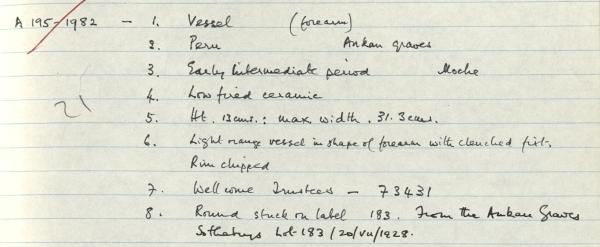 A 195-1982 - 1. Vessel (forearm)
2. Peru Ankan graves
3. Early Intermediate period Moche
4. Low fired ceramic
5. Ht. 13cms.: max. width. 31.3cms.
6. Light orange vessel in shape of forearm with clenched fist.
Rim chipped
7. Wellcome Trustees - 73431
8. Round stuck on label 183. From the Ankan Graves
Sothebys Lot 183/20/VII/1928.
21